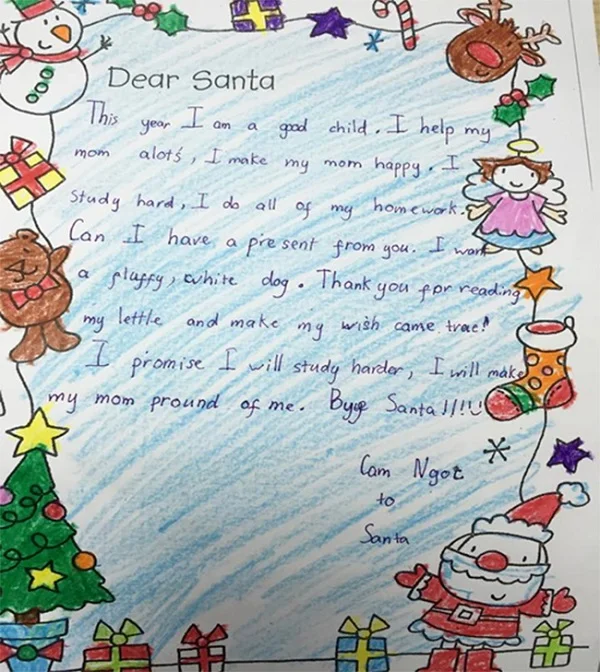 Dear Santa
This year I am a good child. I help my
mom alots, I make my mom happy. I
study hard, I do all of my homework.
Can I have a present from you. I want
a fluffy, white dog. Thank you for reading
my lettle and make my wish came trae!
I promise I will study harder, I will make
my mom pround of me. Byee Santa!!!!
Cam Ngot
to
Santa